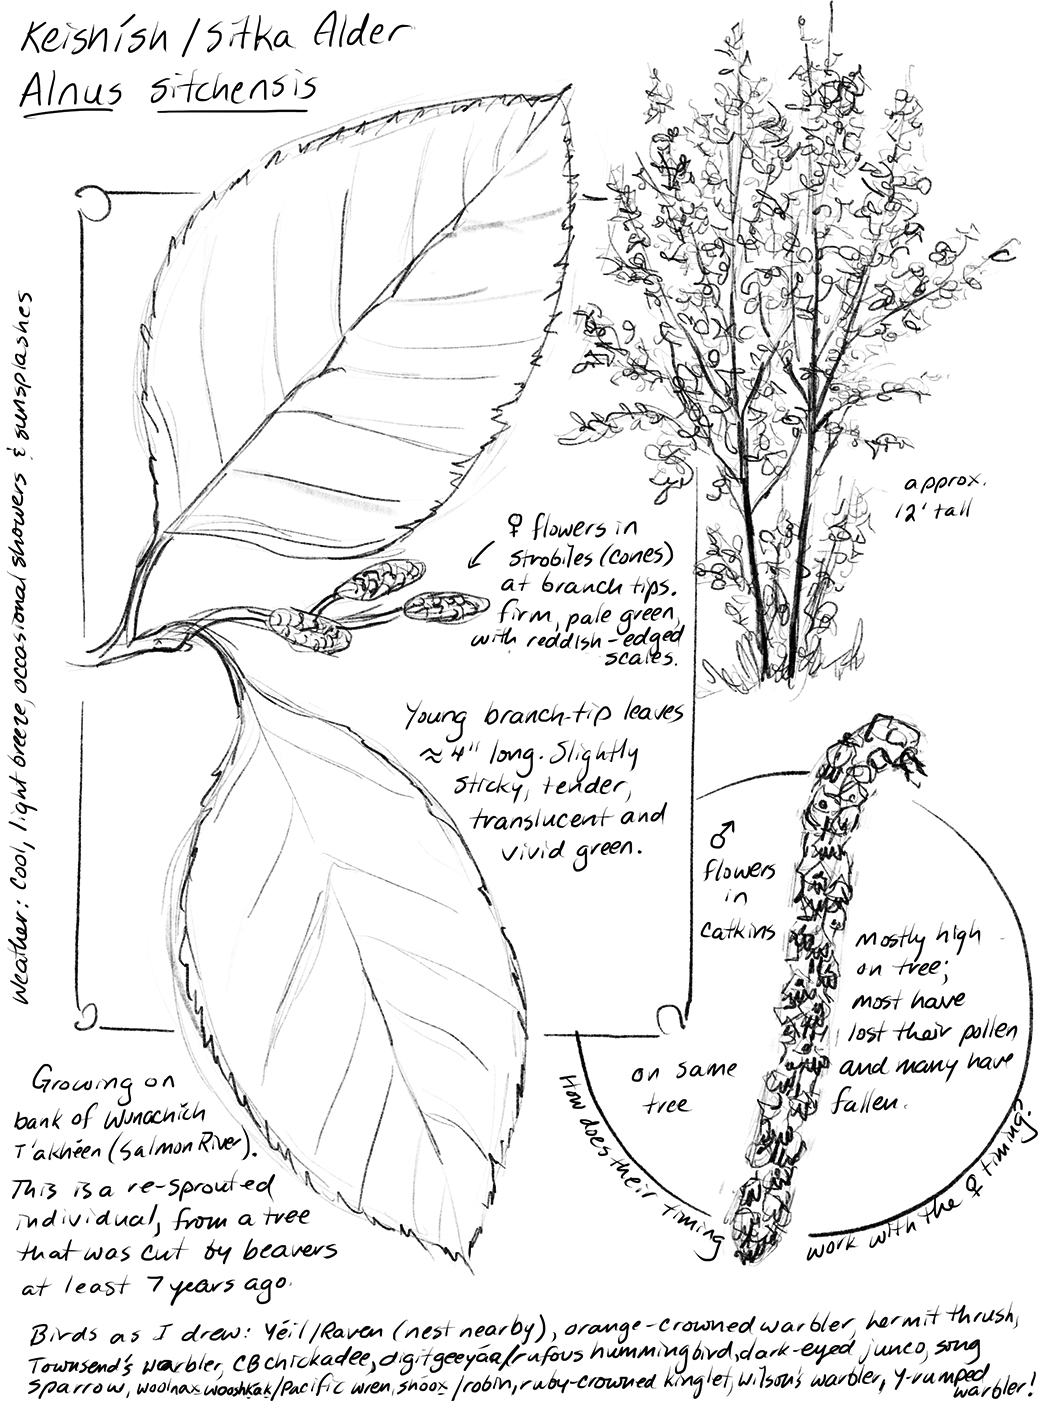 Keishísh / Sitka Alder
Alnus sitchensis
Weather: Cool, light breeze, occasional showers & sunsplashes
approx.
12' tall
♀ flowers in
strobiles (cones)
at branch tips.
firm, pale green,
with reddish-edged
scales.
Young branch-tip leaves
≈ 4" long. Slightly
sticky, tender,
translucent and
vivid green.
♂
flowers
in
catkins
mostly high
on tree;
most have
lost their pollen
and many have
fallen.
on same
tree
How does their timing
work with the ♀ timing?
Growing on
bank of Wunachích
T'aḵhéen (Salmon River).
This is a re-sprouted
individual, from a tree
that was cut by beavers
at least 7 years ago.
Birds as I drew: Yéil/Raven (nest nearby), orange-crowned warbler, hermit thrush,
Townsend's warbler, CB chickadee, digitgeeyáa/rufous hummingbird, dark-eyed junco, song
sparrow, woolnax̱ wooshḵáḵ/Pacific wren, shóox̱/robin, ruby-crowned kinglet, Wilson's warbler, y-rumped
warbler!